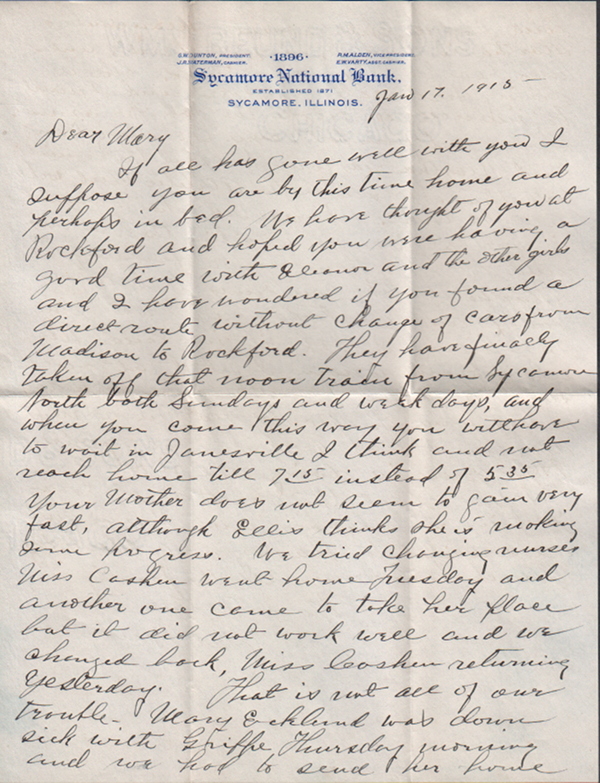 G.W. DUNTON, PRESIDENT.
J.R. WATERMAN, CASHIER.
·1896·
P.M. ALDEN, VICE PRESIDENT.
E.W. VARTY, ASST. CASHIER.
Sycamore National Bank.
ESTABLISHED 1871
SYCAMORE, ILLINOIS.
Jan 17. 1915
Dear Mary
If all has gone well with you I
suppose you are by this time home and
perhaps in bed. We have thought of you at
Rockford and hoped you were having a
good time with Eleanor and the other girls
and I have wondered if you found a
direct route without change of cars from
Madison to Rockford. They have finally
taken off that noon train from Sycamore
North both Sundays and week days, and
when you come this way you will have
to wait in Janesville I think and not
reach home till 7 15 instead of 5 35
Your Mother does not seem to gain very
fast, although Ellis thinks she is making
some progress. We tried changing nurses
Miss Cashen went home Tuesday and
another one came to take her place
but it did not work well and we
changed back, Miss Cashen returning
yesterday. That is not all of our
trouble - Mary Ecklund was down
sick with Grippe Thursday morning
and we had to send her home